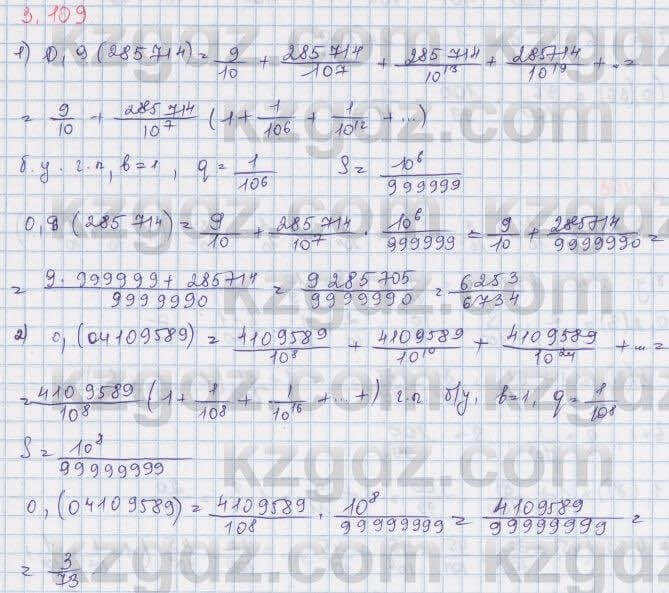 3.109
1) 0,9(285714) = 9/10 + 285714/10^7 + 285714/10^13 + 285714/10^19 + ... =
= 9/10 + 285714/10^7 (1 + 1/10^6 + 1/10^12 + ...)
б.у. г.п, b=1, q = 1/10^6 S = 10^6/999999
0,9(285714) = 9/10 + 285714/10^7 · 10^6/999999 = 9/10 + 285714/9999990 =
= 9·999999 + 285714/9999990 = 9285705/9999990 = 6253/6734
2) 0,(04109589) = 4109589/10^8 + 4109589/10^16 + 4109589/10^24 + ... =
= 4109589/10^8 (1 + 1/10^8 + 1/10^16 + ... +) г.п б/у, b=1, q = 1/10^8
S = 10^8/99999999
0,(04109589) = 4109589/10^8 · 10^8/99999999 = 4109589/99999999 =
= 3/73
kzgdz.com